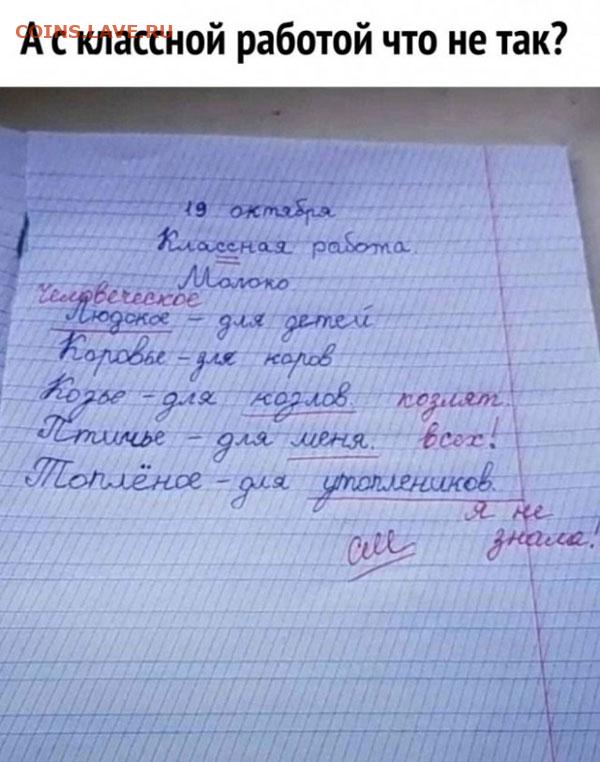 А с классной работой что не так?
COINS.LAVE.RU
19 октября
Классная работа.
Молоко
Человеческое
Людское - для детей
Коровье - для коров
Козье - для козлов. козлят.
Птичье - для меня. всех!
Топлёное - для утоплеников.
Я не
см знала!